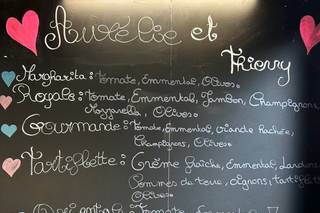 Aurélie et
Thierry
Margharita : Tomate, Emmental, Olives.
Royale : Tomate, Emmental, Jambon, Champignons,
Mozzarella, Olives.
Gourmande : Tomate, Emmental, viande hachée,
Champignons, Olives.
Tartiflette : Crème fraîche, Emmental, Lardons
Pommes de terre, oignons, tartiflette
Olives.
Orientale : Tomate,